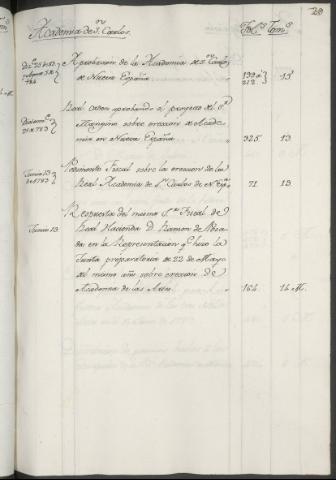 Academia de Sn. Carlos. Fox.s Tom.s
Aprobacion de la Academia de Sn. Carlos
de Nueva España 199 a 212 13
Real orden aprobando el proyecto del Sr.
Mangino sobre ereccion de Acade-
mia en Nueva España 325 13
Pedimento Fiscal sobre la ereccion de la
Real Academia de Sn. Carlos de N. Espa. 71 13
Junio 13 Respuesta del mismo Sr. Fiscal de
Real Hacienda D. Ramon de Posa-
da en la Representacion q.e hizo la
Junta preparatoria de 22 de Mayo
del mismo año sobre ereccion de
Academia de las Artes 164 14 M.